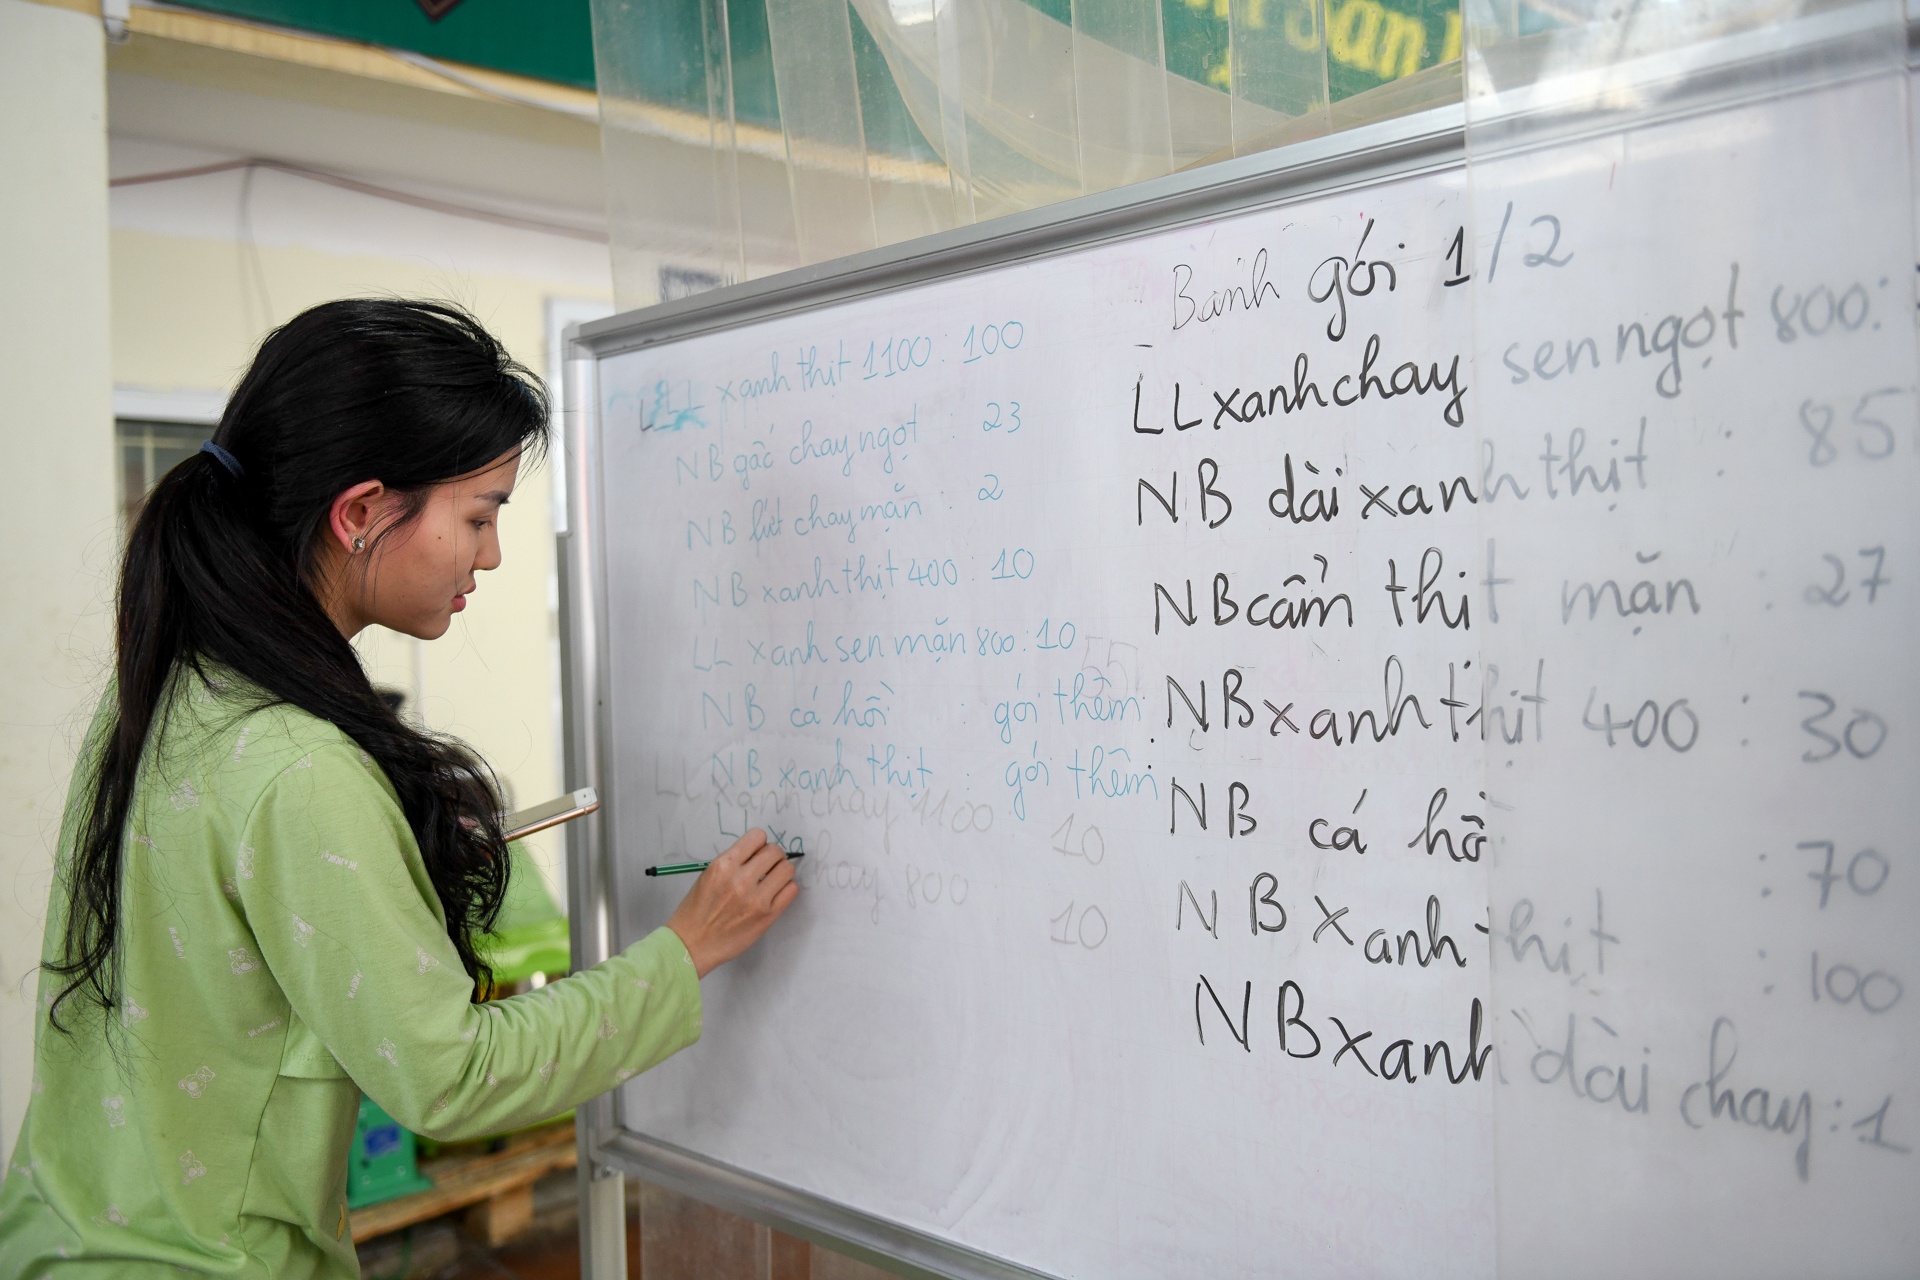 San
LL xanh thịt 1100 : 100
NB gấc chay ngọt : 23
NB chay mặn : 2
NB xanh thịt 400 : 10
LL xanh sen mặn 800 : 10
55
NB cá hồi : gói thêm
NB xanh thịt : gói thêm
LL xanh chay 1100 : 10
LL xa
chay 800 10
Bánh gói 1/2
LL xanh chay sen ngọt 800 :
NB dài xanh thịt : 85
NB cẩm thịt mặn : 27
NB xanh thịt 400 : 30
NB cá hồ : 70
NB xanh thịt : 100
NB xanh dài chay : 1